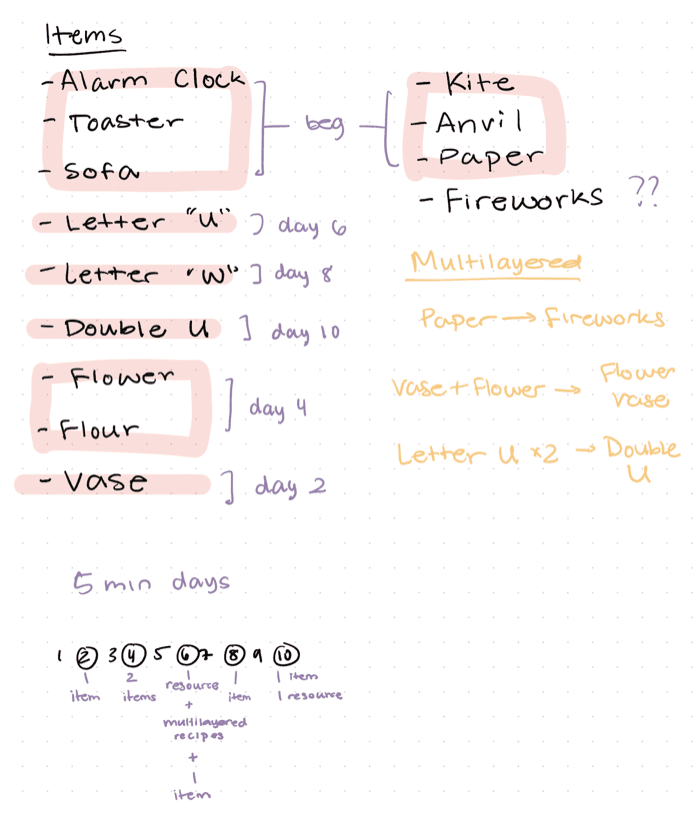 Items
- Alarm Clock
- Toaster
- Sofa
beg
- Kite
- Anvil
- Paper
- Fireworks ??
- Letter "U" day 6
- Letter "W" day 8
- Double U day 10
- Flower
- Flour
day 4
- Vase day 2
Multilayered
Paper → Fireworks
Vase + Flower → Flower
vase
Letter U x2 → Double
U
5 min days
1 2 3 4 5 6 7 8 9 10
item
2
items
resource
+
multilayered
recipes
+
1
item
1
item
1 item
1 resource